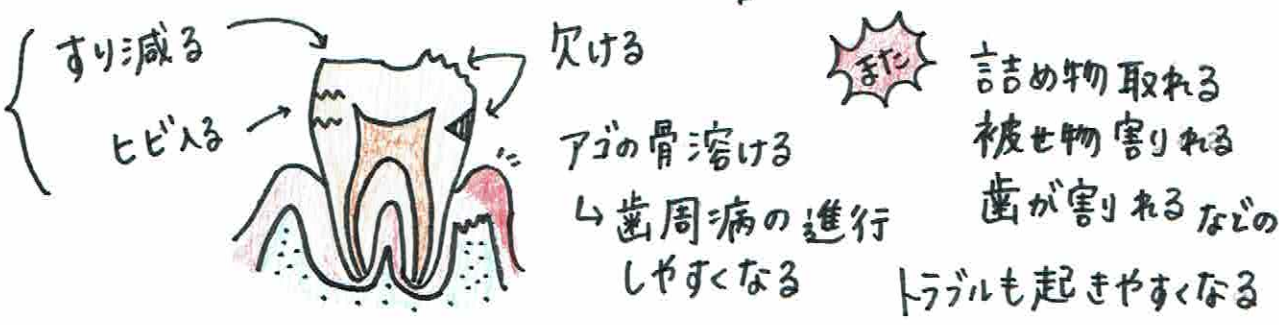 すり減る
ヒビ入る
欠ける
アゴの骨溶ける
↳歯周病の進行
しやすくなる
また
詰め物取れる
被せ物割りれる
歯が割りれるなどの
トラブルも起きやすくなる